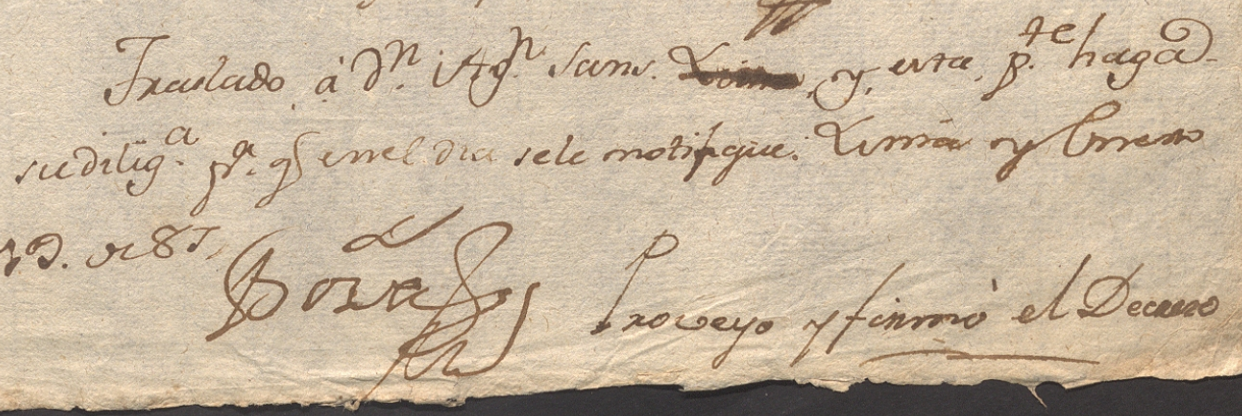 Traslado à Dn. Agn. Sans. y, esta pte. haga
su diliga. pa. q en el dia sele notifique. Lima y Enero
de 87,
Proveyo y firmó el Decreto